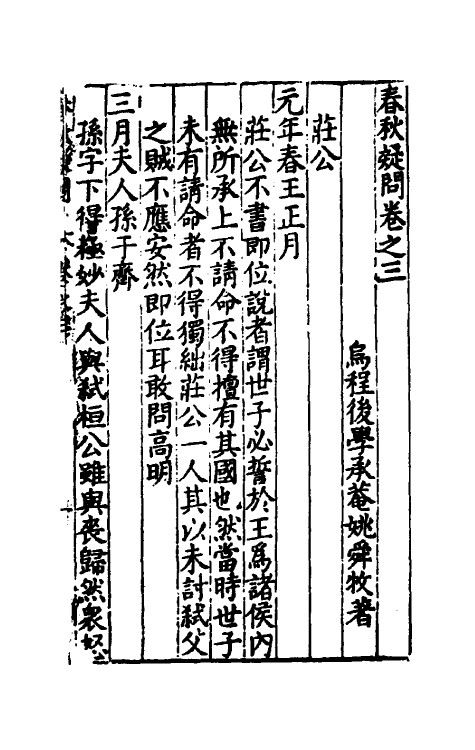 春秋疑問卷之三
烏程後學承菴姚舜牧著
莊公
元年春王正月
莊公不書即位說者謂世子必誓於王爲諸侯內
無所承上不請命不得擅有其國也然當時世子
未有請命者不得獨絀莊公一人其以未討弒父
之賊不應安然即位耳敢問高明
三月夫人孫于齊
孫字下得極妙夫人與弒桓公雖與喪歸然衆怒